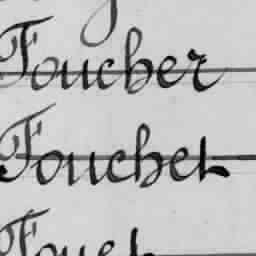 Foucher
Fouchet